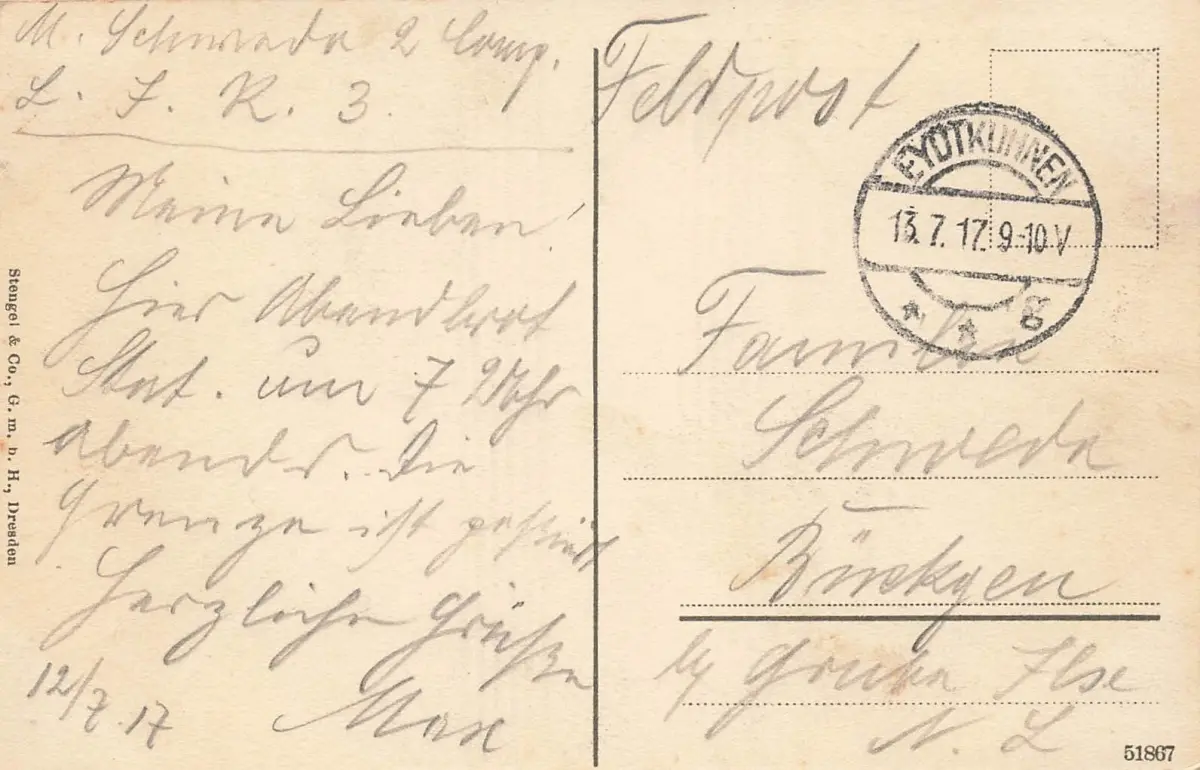 M. Schweda 2 Comp.
L. I. R. 3.
Meine Lieben!
Hier Abendbrot
Stat. um 7 Uhr
abends. Die
Grenze ist
Herzliche Grüße
12/7.17 Max
Stengel & Co., G. m. b. H., Dresden
Feldpost
EYDTKUHNEN
13.7.17. 9-10 V
* * g
Familie
Schweda
Bückgen
by Grube Ilse
N. L
51867